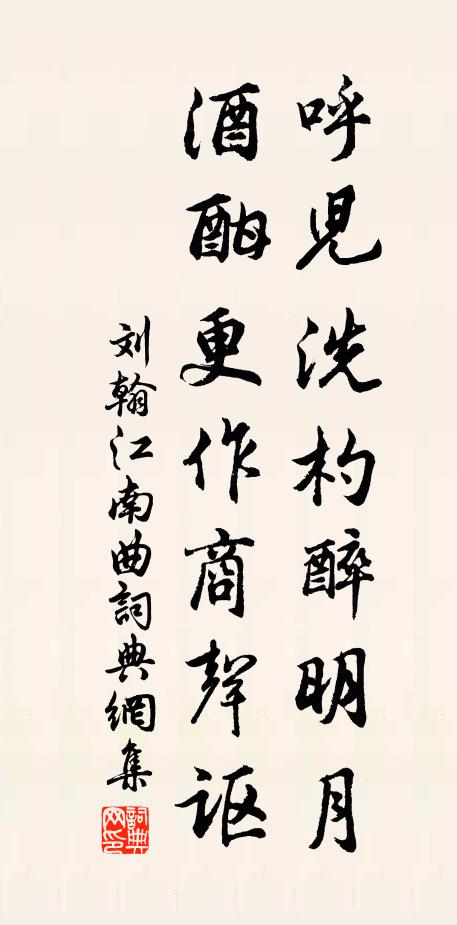 呼児洗杓醉明月
酒酣更作商聲讴
刘翰江南曲詞典網集
詞典网印